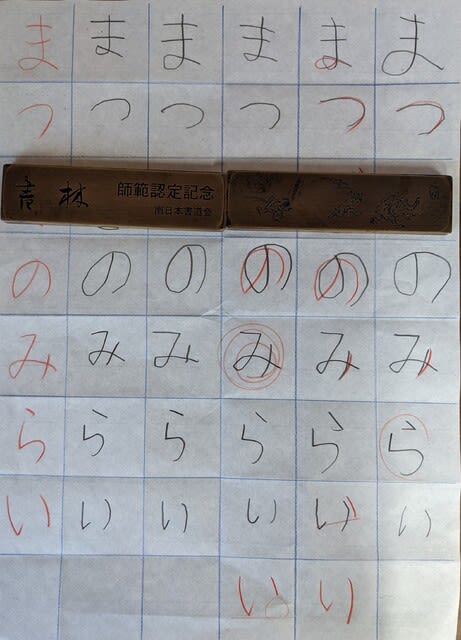 ま ま ま ま ま ま
つ つ つ つ つ つ
師範認定記念
南日本書道会
の の の の の の
み み み み み み
ら ら ら ら ら ら
い い い い い い
い い